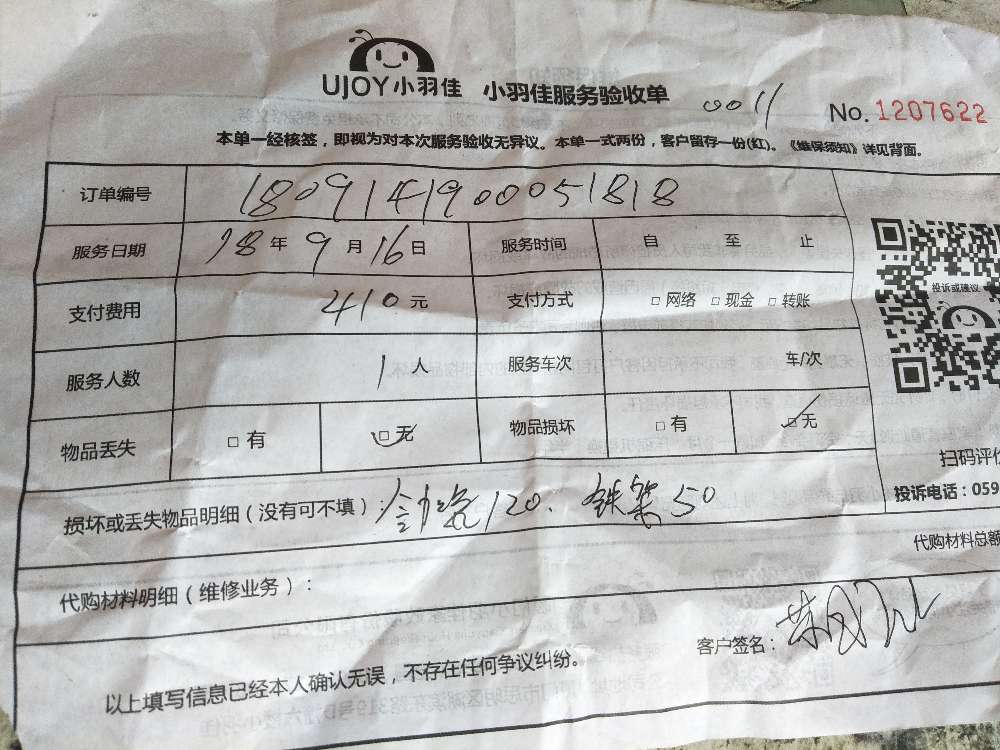 UJOY小羽佳 小羽佳服务验收单 0011
No. 1207622
本单一经核签，即视为对本次服务验收无异议。本单一式两份，客户留存一份(红)。《维保须知》详见背面。
订单编号 180914190051818
服务日期 18年9月16日 服务时间 自 至 止
支付费用 410元 支付方式 □网络 □现金 □转账
投诉或建议
服务人数 1人 服务车次 车/次
物品丢失 □有 □无 物品损坏 □有 □无
扫码评价
损坏或丢失物品明细（没有可不填）： 120、铁架50
投诉电话：059
代购材料总额
代购材料明细（维修业务）：
客户签名：
以上填写信息已经本人确认无误，不存在任何争议纠纷。